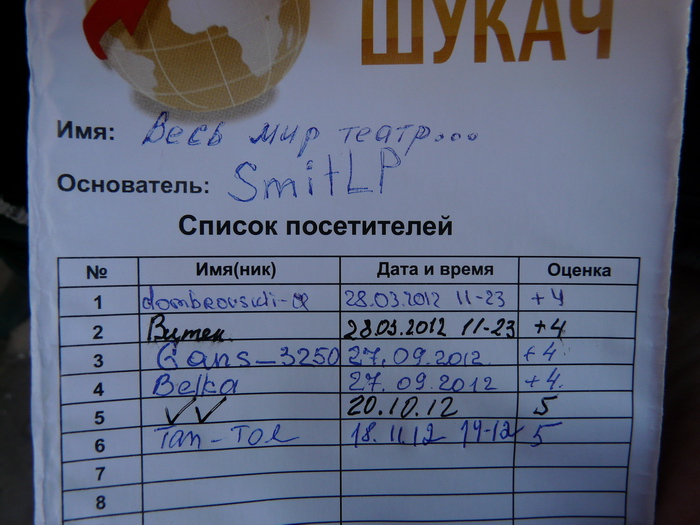 ШУКАЧ
Имя: Весь мир театр...
Основатель: SmitLP
Список посетителей
№ Имя(ник) Дата и время Оценка
1 dombrovskii-a 28.03.2012 11-23 +4
2 Витек 28.03.2012 11-23 +4
3 Gans_3250 27.09.2012 +4
4 Belka 27.09.2012 +4
5 ✓✓ 20.10.12 5
6 Tan-Tol 18.11.12 14-12 5
7
8